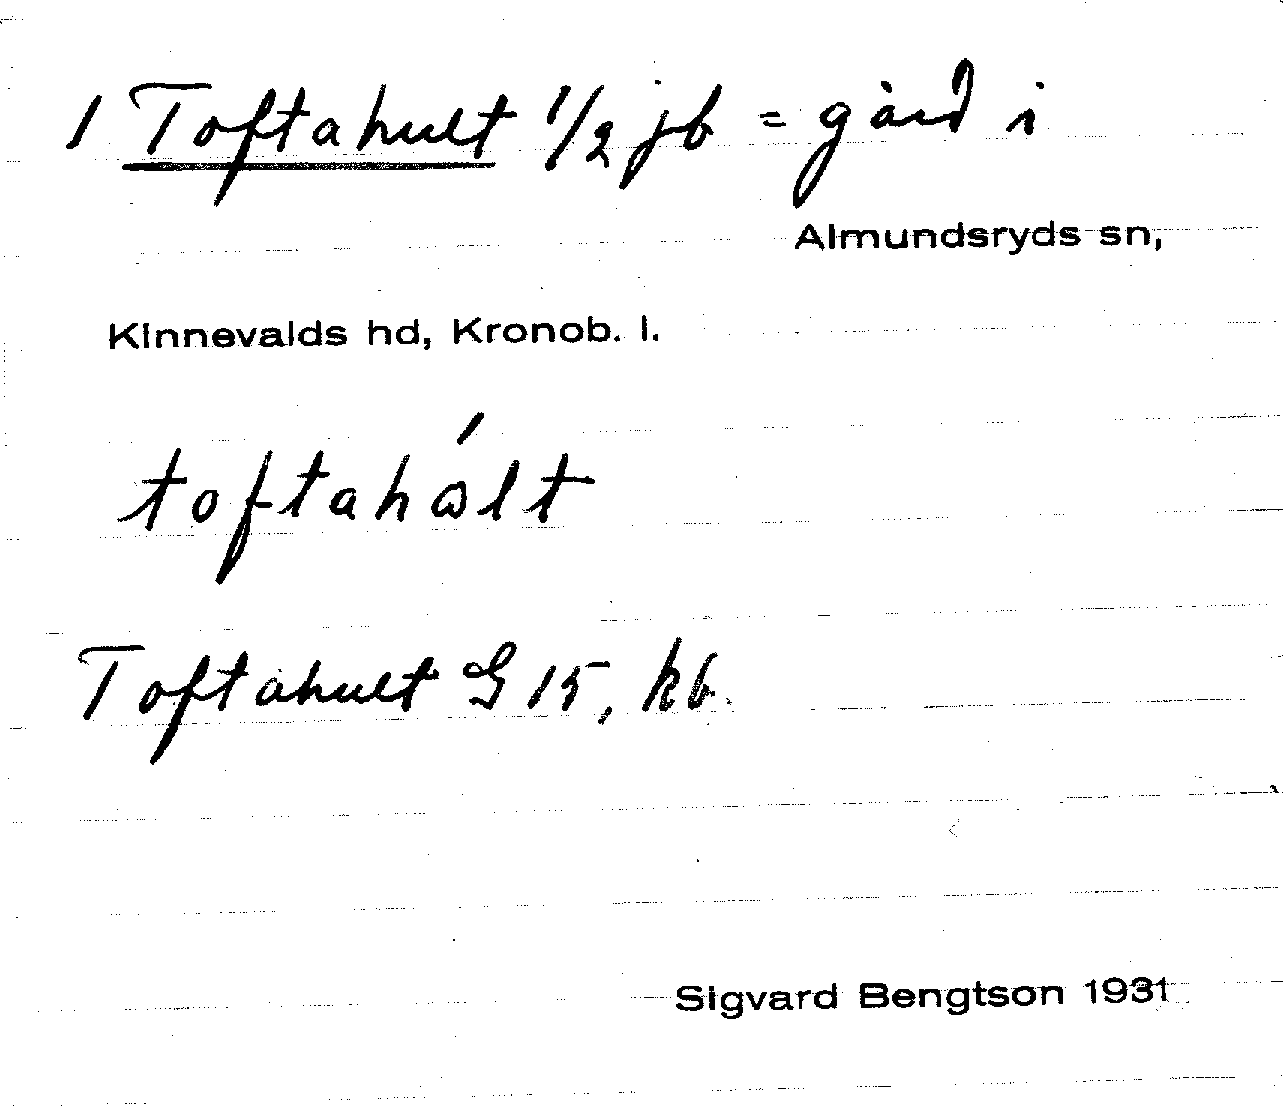 1 Toftahult 1/2 jb = gård i
Almundsryds sn,
Kinnevalds hd, Kronob. l.
toftahώlt
Toftahult G 15, kb.
Sigvard Bengtson 1931